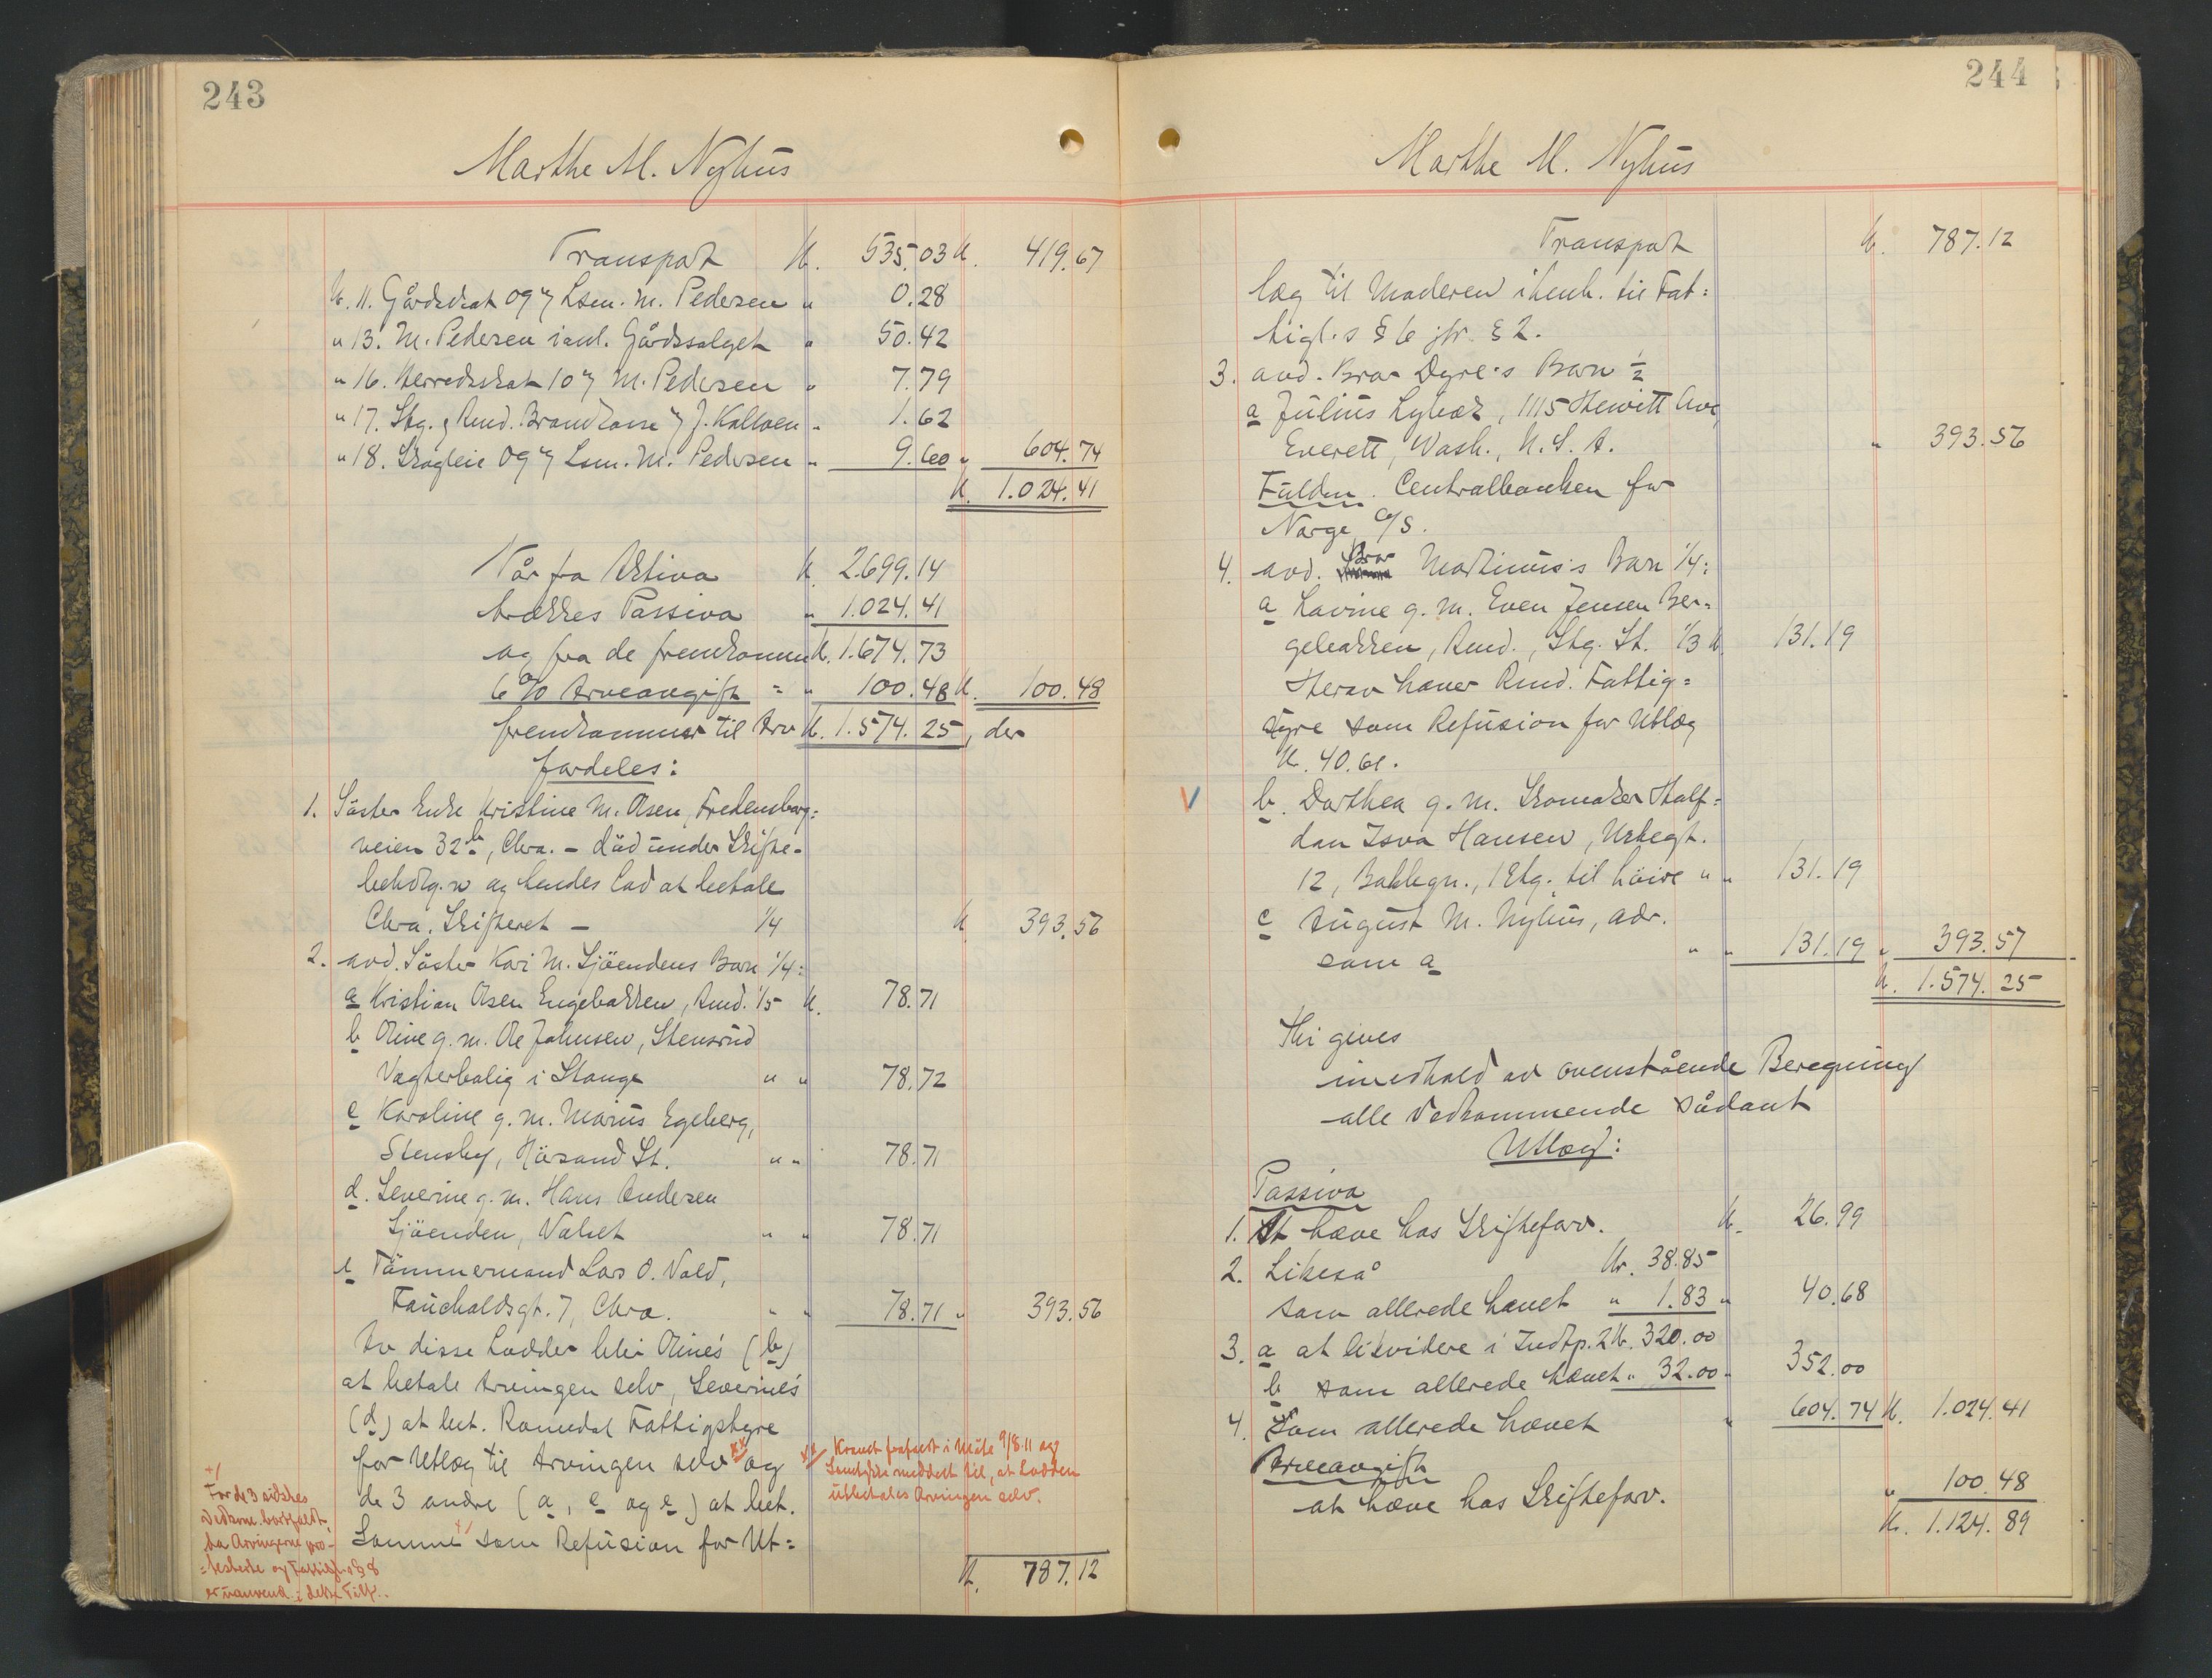 243
Marthe M. Nyhus
Transport k. 535.03 k. 419.67
k. 11. Gårdskat 09 Lsm. M. Pedersen " 0.28
" 13. M. Pedersen i anl. Gårdssalget " 50.42
" 16. Herredsskat 10 M. Pedersen " 7.79
" 17. Stg. & Rmd. Brandkasse J. Kaltoen " 1.62
" 18. Skogleie 09 Lsm. M. Pedersen " 9.60 " 604.74
k. 1.024.41
Når fra Aktiva k. 2.699.14
trækkes Passiva " 1.024.41
og fra de fremkomne k. 1.674.73
6 % Arveavgift = " 100.48 k. 100.48
fremkommer til Arv k. 1.574.25, der
fordeles:
1. Søster Enke Kristine M. Olsen, Fredensborg=
veien 32 b, Chra. - død under Skifte-
behdlg.n og hendes Lod at betale
Chra. Skifteret - 1/4 k. 393.56
2. avd. Søster Kari M. Sjøendens Barn 1/4:
a Kristian Olsen Engebakken, Rmd. 1/5 k. 78.71
b Oline g. m. Ole Johnsen, Stensrud
Vogterbolig i Stange " " 78.72
c Karoline g. m. Marius Egeberg,
Stensby, Hörsand St. " " 78.71
d. Severine g. m. Hans Andersen
Sjöenden, Valset " " 78.71
e Tömmermand Lars O. Vold,
Fauchaldsgt. 7, Chra. " " 78.71 " 393.56
Av disse Lodder blir Oline's (b)
at betale Arvingen selv, Severine's
(d) at bet. Romedal Fattigstyre
for Utlæg til Arvingen selv xx og
de 3 andre (a, c og e) at bet.
Samme +/ som Refusion for Ut=
k. 787.12
xx Kravet frafaldt i Møte 9/8.11 og
Samtykke meddelt til, at Lodden
utbetales Arvingen selv.
+/
For de 3 sidstes
Vedkom. bortfaldt,
da Arvingerne pro-
=testerte og Fattigl.s § 8
er uanvend. i dette Tilf..
244
Marthe M. Nyhus
Transport k. 787.12
læg til Moderen i henh. til Fat=
tigl.s § 6 jfr. § 2.
3. avd. Bror Dyre's Barn 1/2
a Julius Lybæk, 1115 Hewitt Ave,
Everett, Wash., U. S. A. " 393.56
Fuldm. Centralbanken for
Norge A/S.
4. avd. Bror Martinus's Barn 1/4:
a Lavine g. m. Even Jensen Ber=
gebakken, Rmd., Stg. St. 1/3 k. 131.19
Herav hæver Rmd. Fattig=
styre som Refusion for Utlæg
k. 40.61.
V b. Dorthea g. m. Skomaker Half=
dan Isva Hansen, Urtegt.
12, Bakkegn., 1 Etg. til höire " " 131.19
c August M. Nyhus, adr.
som a " " 131.19 " 393.57
k. 1.574.25
Thi gives
i medhold av ovenstående Beregning
alle Vedkommende sådant
Utlæg:
Passiva
1. At hæve hos Skifteforv. k. 26.99
2. Likeså kr. 38.85
som allerede hævet " 1.83 " 40.68
3. a at likvidere i Indtp. 2 k. 320.00
b som allerede hævet " 32.00 " 352.00
4. Som allerede hævet " 604.74 k. 1.024.41
Arveavgift
at hæve hos Skifteforv. " 100.48
k. 1.124.89